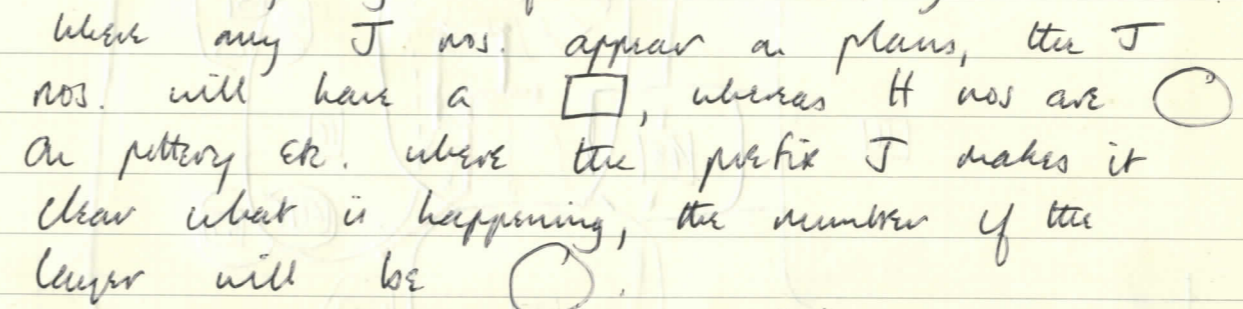 where any J nos. appear on plans, the J
nos. will have a □, whereas H nos are ○
on pottery etc. where the prefix J makes it
clear what is happening, the number of the
layer will be ○.